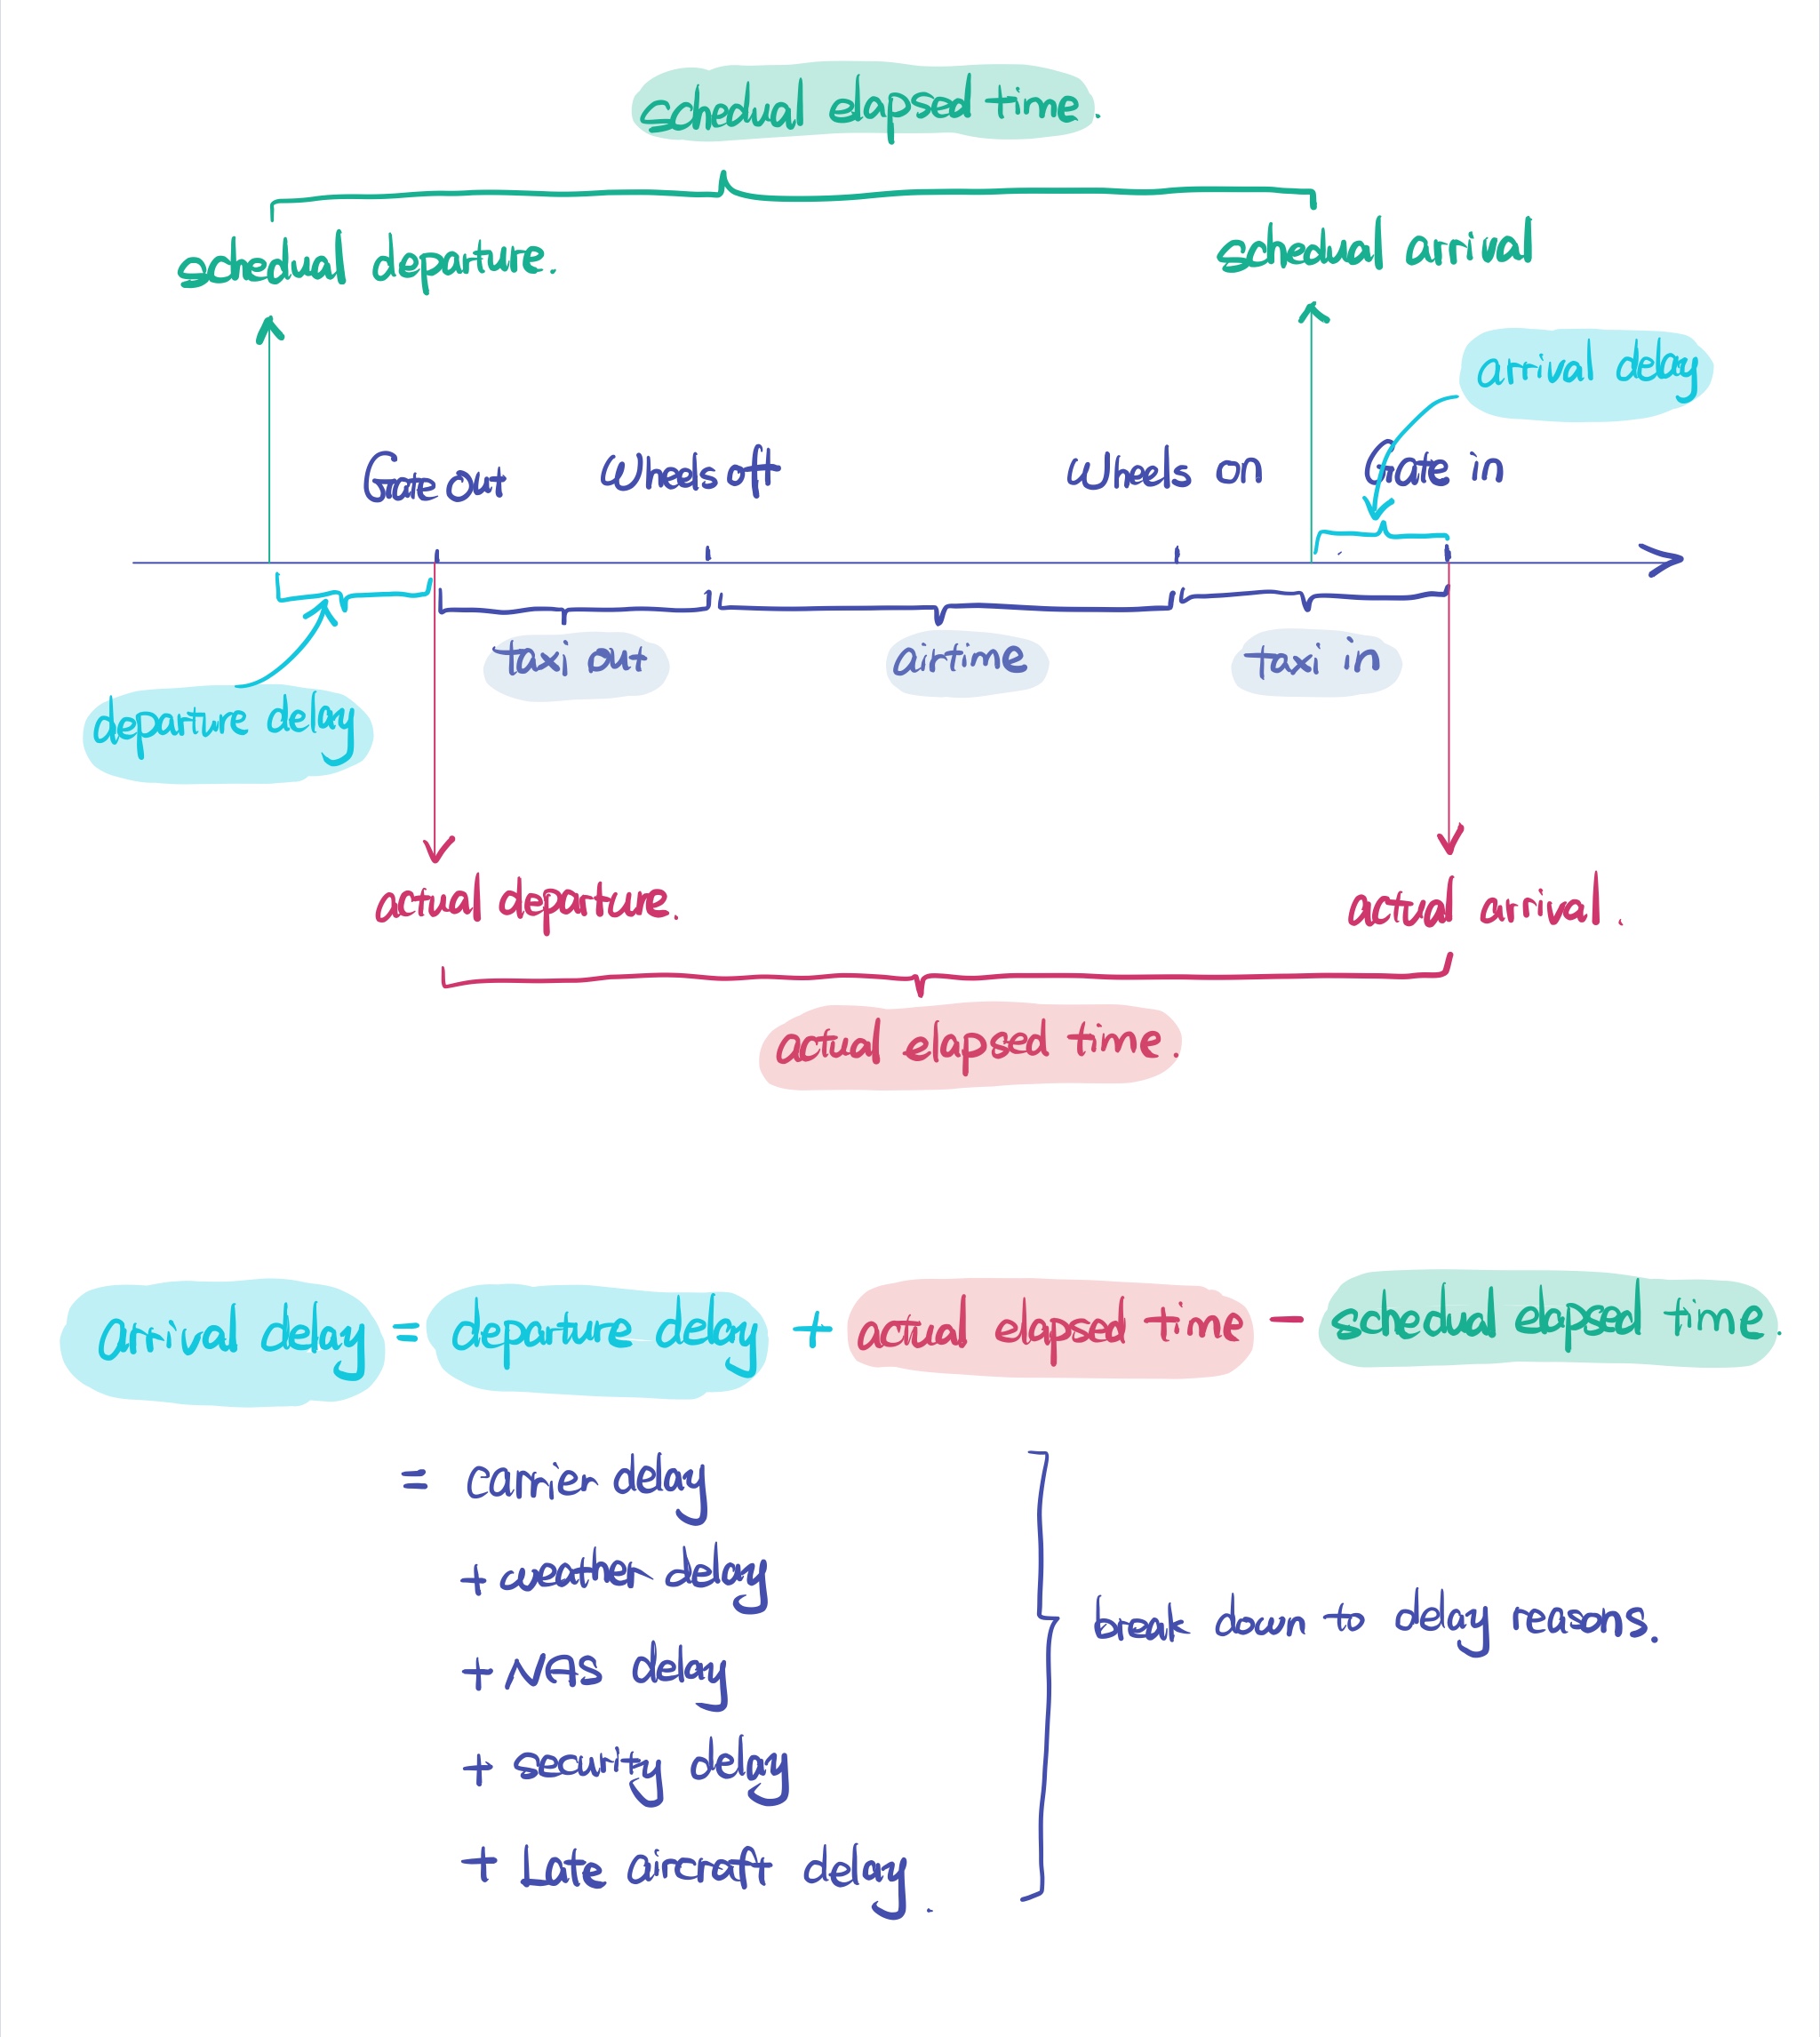 schedual elapsed time.
schedual departure.
schedual arrival
arrival delay
Gate out
Wheels off
Wheels on
Gate in
taxi out
airtime
taxi in
departure delay
actual departure.
actual arrival.
actual elapsed time.
arrival delay = departure delay + actual elapsed time - schedual elapsed time.
= carrier delay
+ weather delay
+ NAS delay
+ security delay
+ Late aircraft delay.
break down to delay reasons.